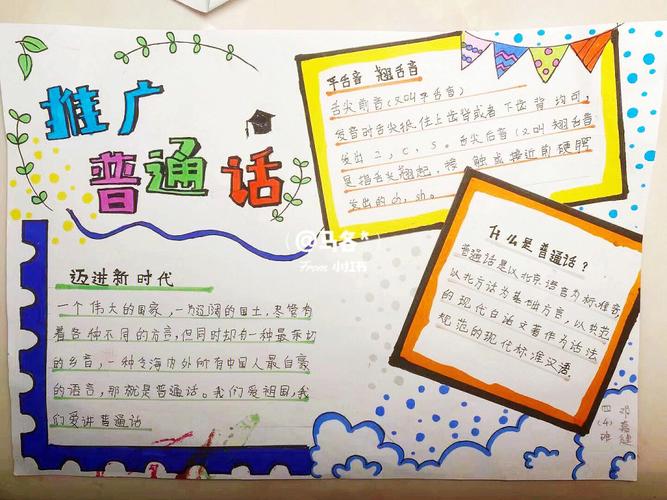 推广
普通话
平舌音 翘舌音
舌尖前音(又叫平舌音)
发音时舌尖抵住上齿背或者下齿背均可,
发出z,c,s。舌尖后音(又叫翘舌音
是指舌尖翘起,接触或接近前硬腭
发出的
sh。
什么是普通话?
普通话是以北京语言为标准音,
以北方话为基础方言,以典范
的现代白话文著作为语法
规范的现代标准汉语
迈进新时代
一个伟大的国家,一为辽阔的国土,尽管有
着各种不同的方言,但同时却有一种最亲切
的乡音,一种令海内外所有中国人最自豪
的语言,那就是普通话。我们爱祖国,我
们爱讲普通话
From 小红书
四(4)班
邓嘉